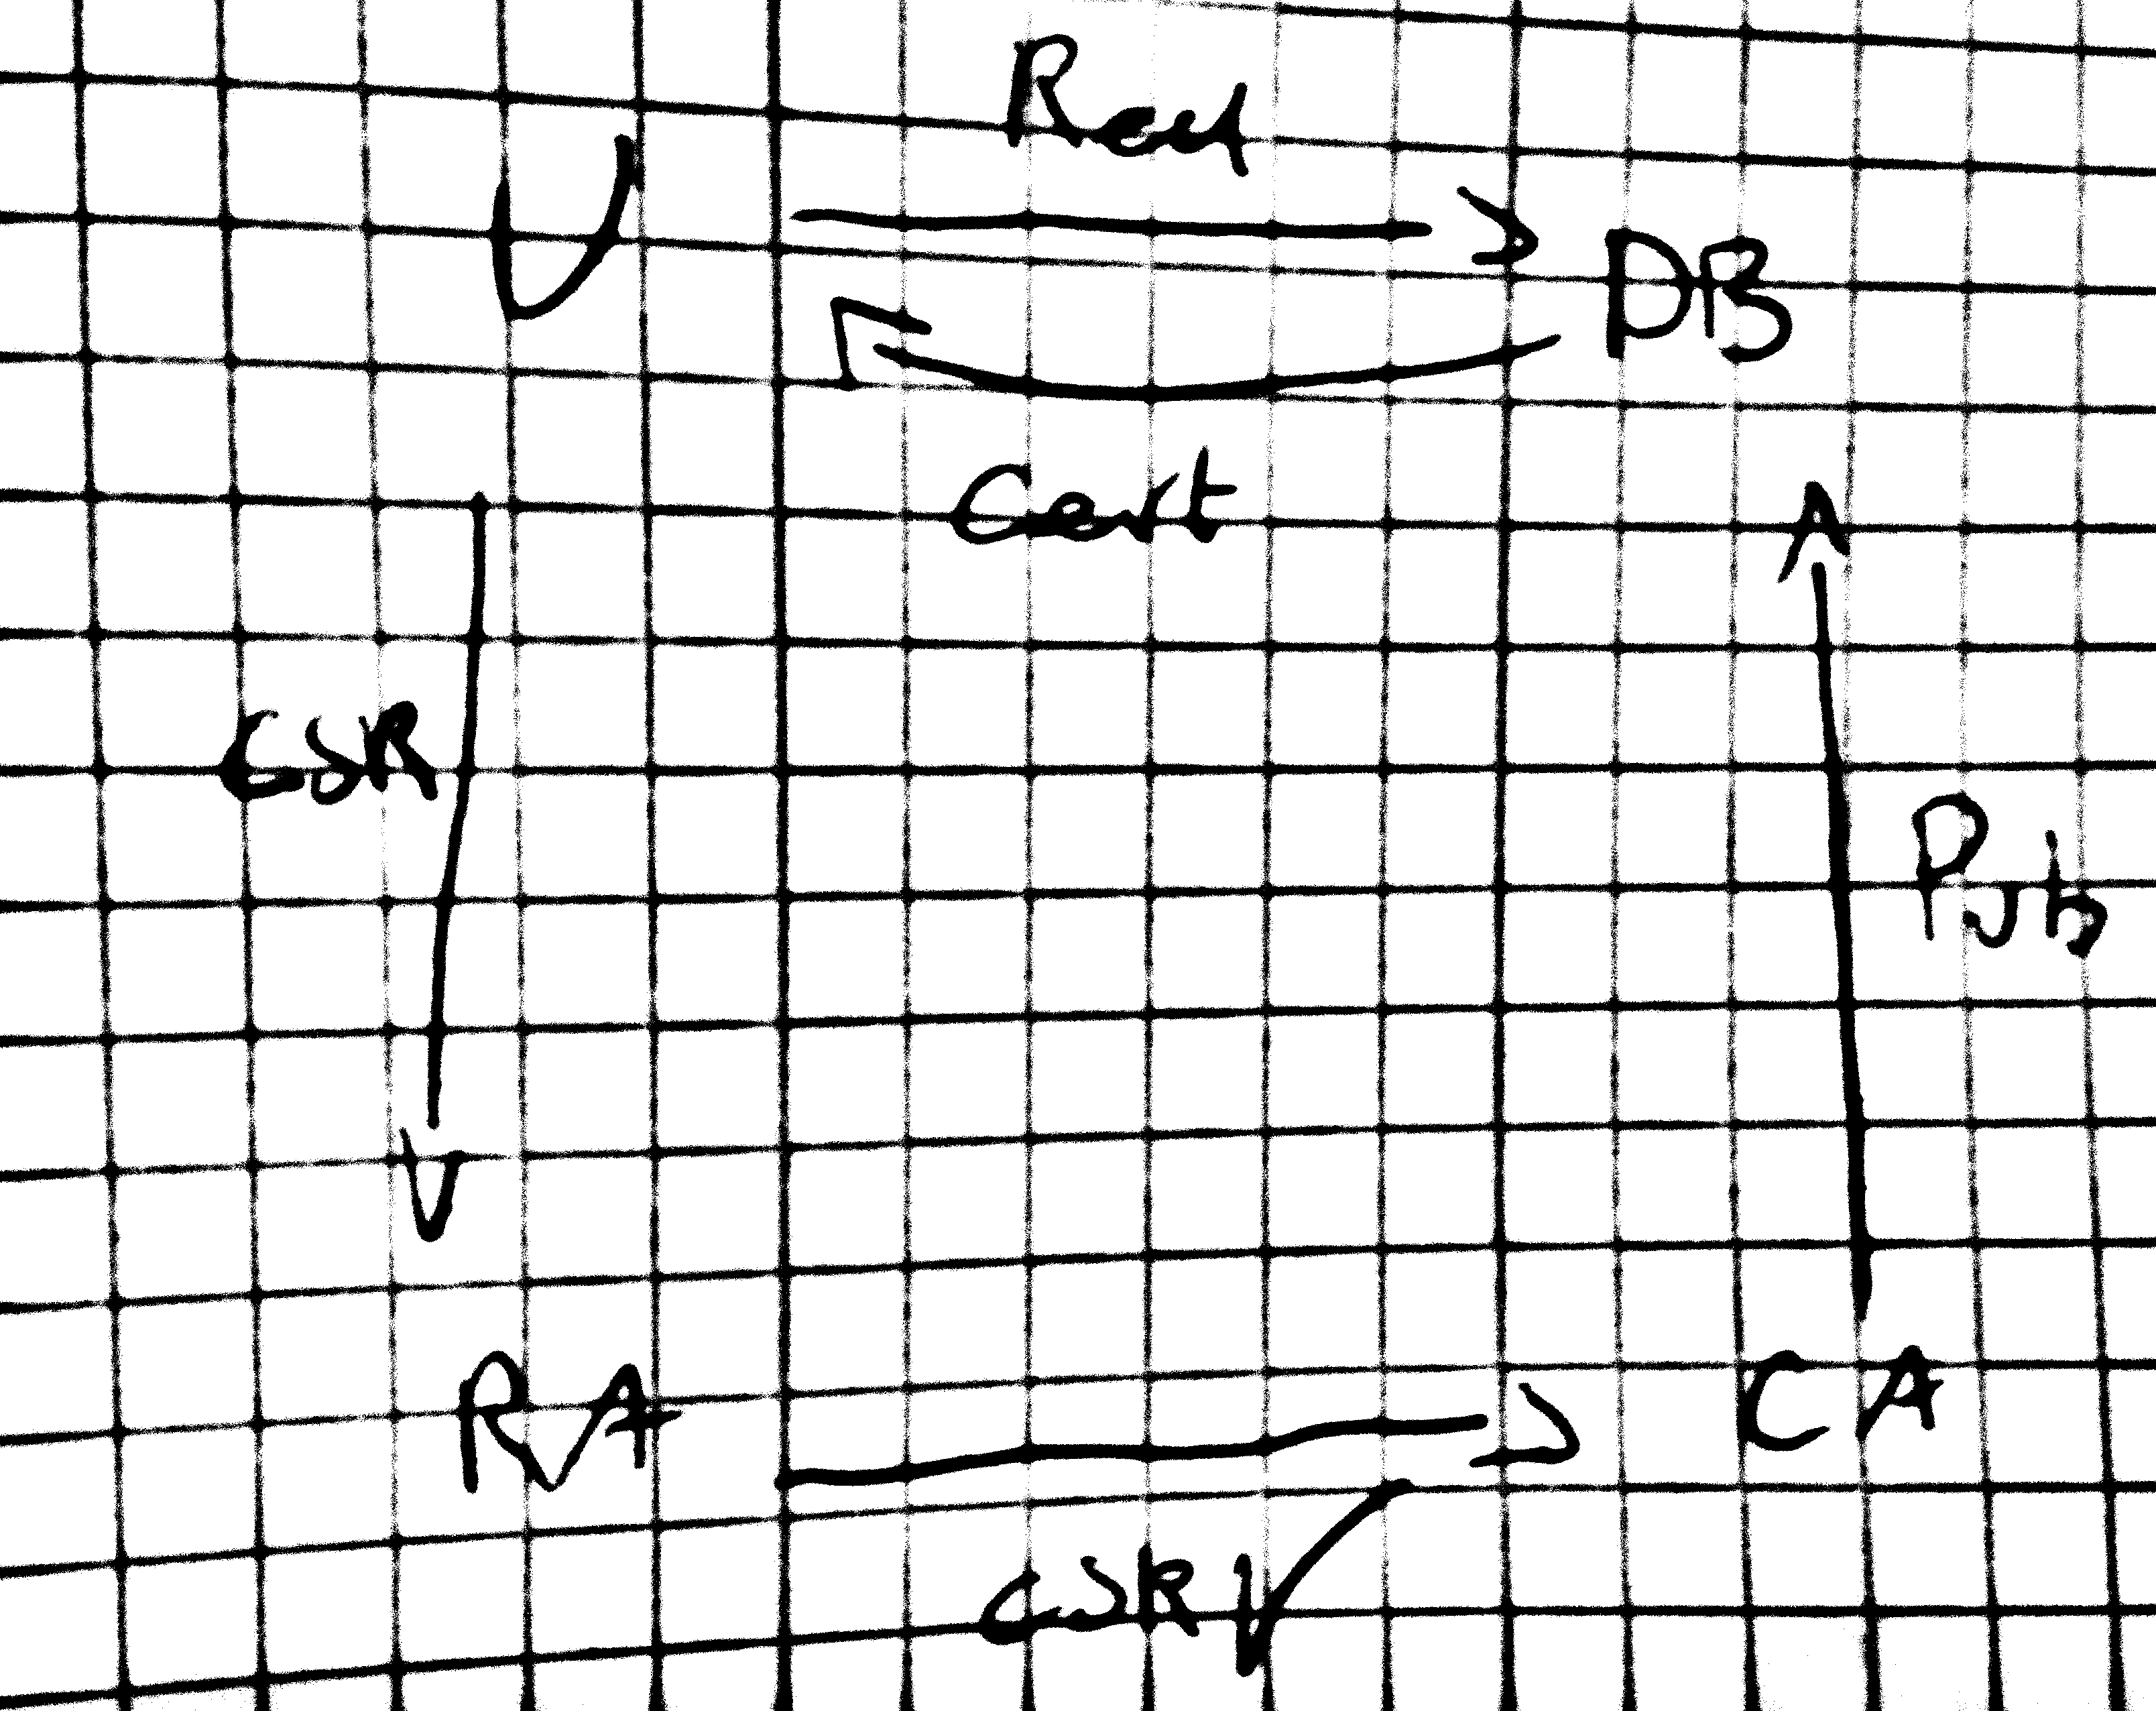 Read
U
DB
Cert
CSR
Push
RA
CA
CSR ✓